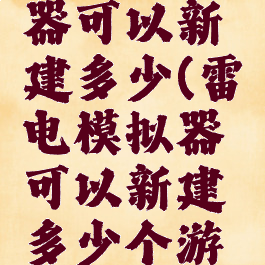 器可以新
建多少(雷
电模拟器
可以新建
多少个游